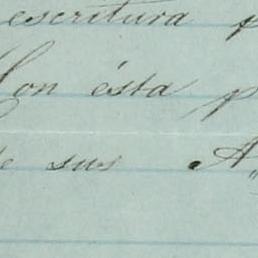 escritura p
Con ésta p
de sus A